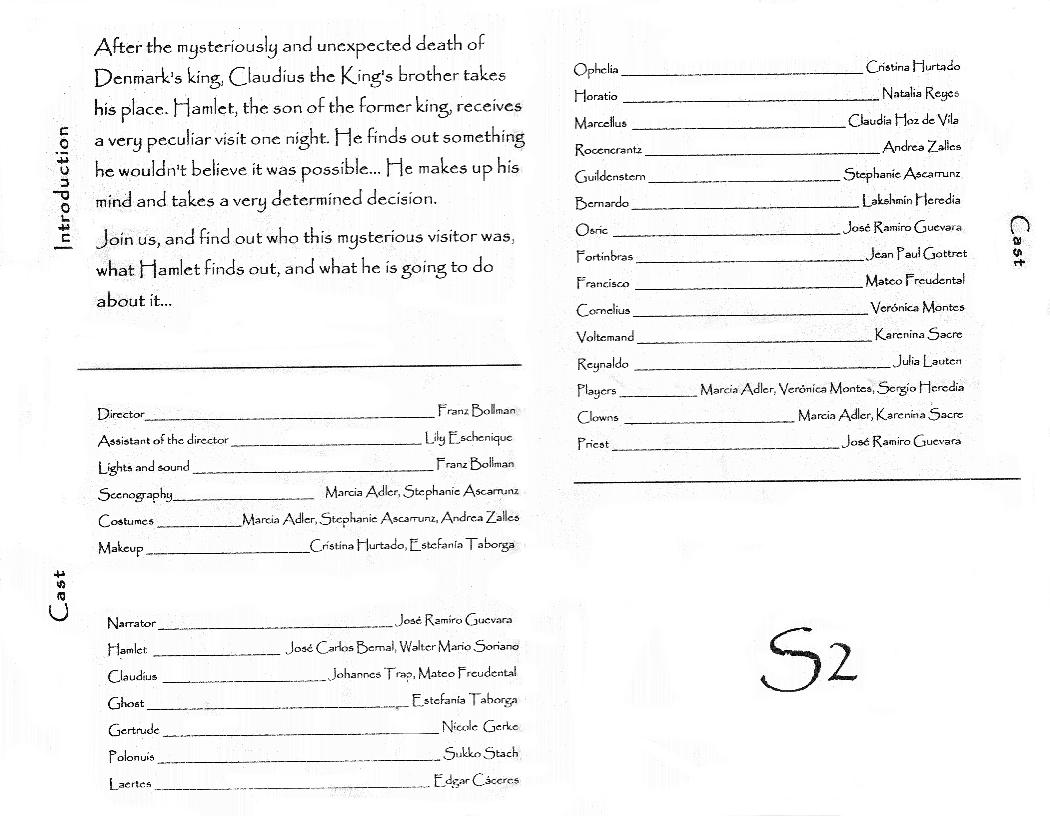 Introduction
After the mysteriously and unexpected death of
Denmark's king, Claudius the King's brother takes
his place. Hamlet, the son of the former king, receives
a very peculiar visit one night. He finds out something
he wouldn't believe it was possible... He makes up his
mind and takes a very determined decision.
Join us, and find out who this mysterious visitor was,
what Hamlet finds out, and what he is going to do
about it...
Cast
Director Franz Bollman
Assistant of the director Lily Eschenique
Lights and sound Franz Bollman
Scenography Marcia Adler, Stephanie Ascarrunz
Costumes Marcia Adler, Stephanie Ascarrunz, Andrea Zalles
Makeup Cristina Hurtado, Estefanía Taborga
Narrator José Ramiro Guevara
Hamlet José Carlos Bernal, Walter Mario Soriano
Claudius Johannes Trap, Mateo Freudental
Ghost Estefanía Taborga
Gertrude Nicole Gerke
Polonuis Sukko Stach
Laertes Edgar Cáceres
Cast
Ophelia Cristina Hurtado
Horatio Natalia Reyes
Marcellus Claudia Hoz de Vila
Rocencrantz Andrea Zalles
Guildenstern Stephanie Ascarrunz
Bernardo Lakshmin Heredia
Osric José Ramiro Guevara
Fortinbras Jean Paul Gottret
Francisco Mateo Freudental
Cornelius Verónica Montes
Voltemand Karenina Sacre
Reynaldo Julia Lauten
Players Marcia Adler, Verónica Montes, Sergio Heredia
Clowns Marcia Adler, Karenina Sacre
Priest José Ramiro Guevara
S2